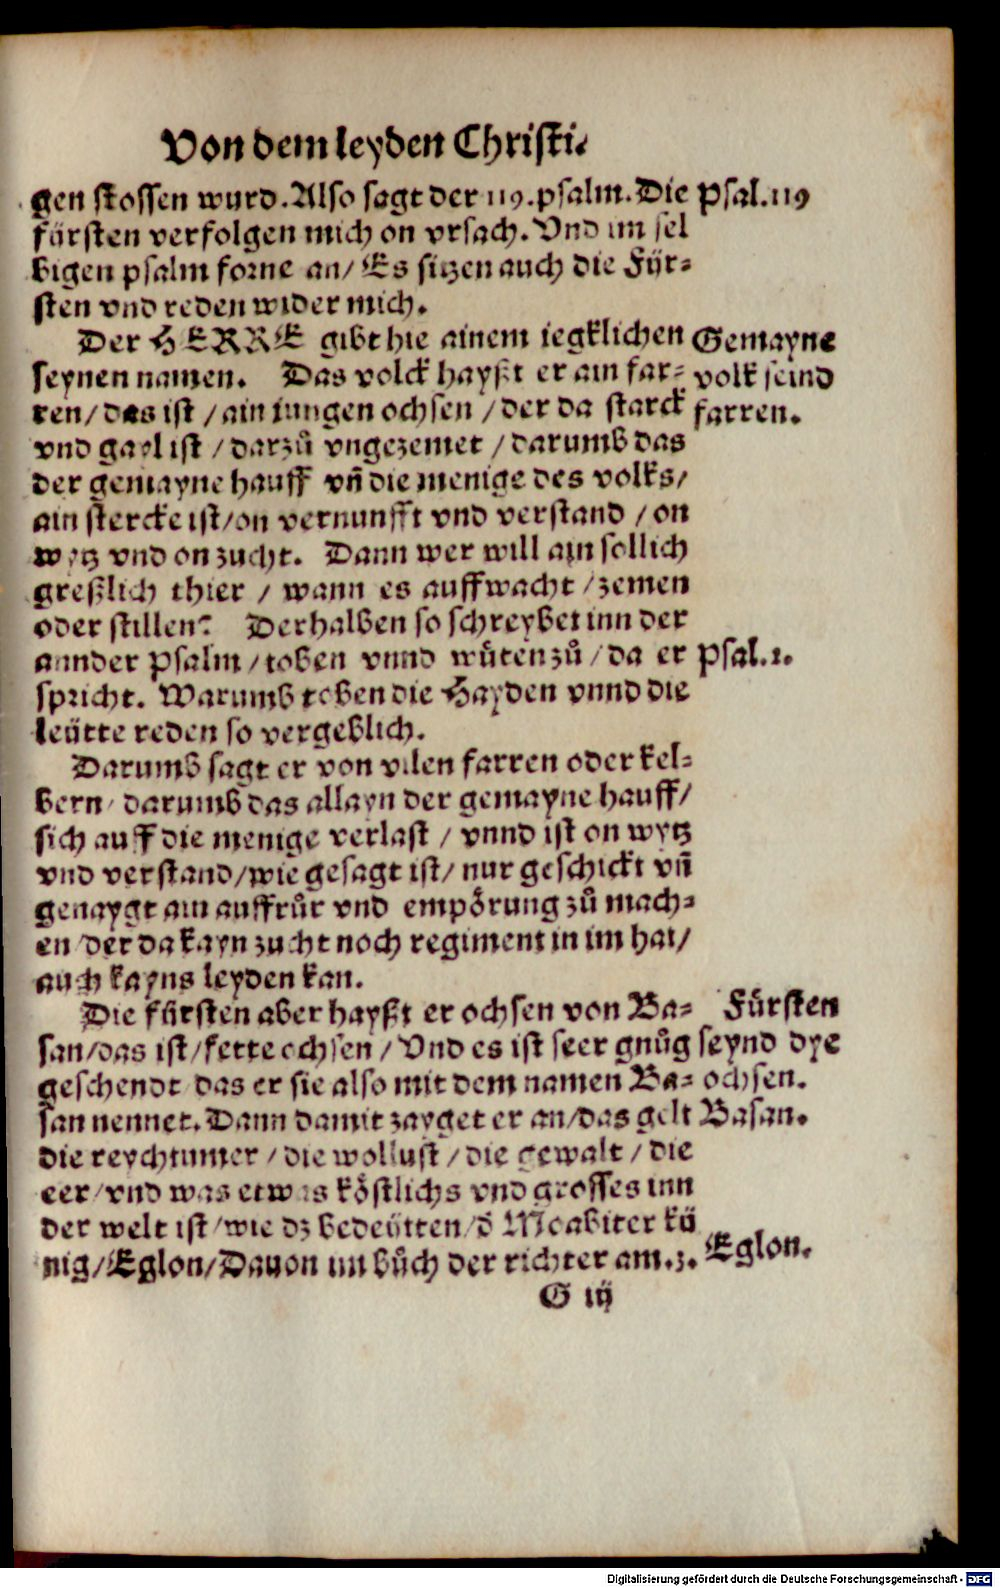 Von dem leyden Christi.
gen stossen wurd. Also sagt der 119. psalm. Die
Psal. 119
fürsten verfolgen mich on vrsach. Vnd im sel
bigen psalm forne an/ Es sitzen auch die Für-
sten vnd reden wider mich.
Der HERRE gibt hie ainem iegklichen
Gemayne
seynen namen. Das volck hayßt er ain far-
volk seind
ren/ das ist / ain iungen ochsen / der da starck
farren.
vnd gayl ist / darzů vngezemet / darumb das
der gemayne hauff vñ die menige des volks/
ain stercke ist/ on vernunfft vnd verstand / on
wytz vnd on zucht. Dann wer will ain sollich
greßlich thier / wann es auffwacht / zemen
oder stillen? Derhalben so schreybet inn der
annder psalm / toben vnnd wüten zů / da er
Psal. 2.
spricht. Warumb toben die Hayden vnnd die
leütte reden so vergeblich.
Darumb sagt er von vilen farren oder kel-
bern/ darumb das allayn der gemayne hauff/
sich auff die menige verlast / vnnd ist on wytz
vnd verstand/ wie gesagt ist/ nur geschickt vñ
genaygt ain auffrůr vnd empörung zů mach-
en/ der da kayn zucht noch regiment in im hat/
auch kayns leyden kan.
Die fürsten aber hayßt er ochsen von Ba-
Fürsten
san/ das ist/ fette ochsen / Vnd es ist seer gnůg
seynd dye
geschendt das er sie also mit dem namen Ba-
ochsen.
san nennet. Dann damit zayget er an/ das gelt
Basan.
die reychtumer / die wollust / die gewalt / die
eer/ vnd was etwas köstlichs vnd grosses inn
der welt ist/ wie dz bedeütten/ ď Moabiter kü
nig/ Eglon/ Dauon im bůch der richter am. 3.
Eglon.
G iij
Digitalisierung gefördert durch die Deutsche Forschungsgemeinschaft - DFG